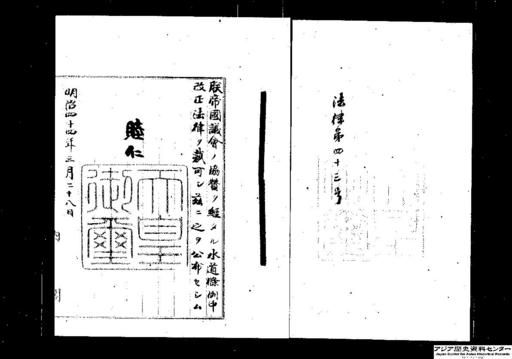 法律第四十三号
朕帝國議會ノ協贊ヲ經タル水道條例中
改正法律ヲ裁可シ茲ニ之ヲ公布セシム
睦仁
天皇
御璽
明治四十四年三月二十八日
アジア歴史資料センター
Japan Center for Asian Historical Records